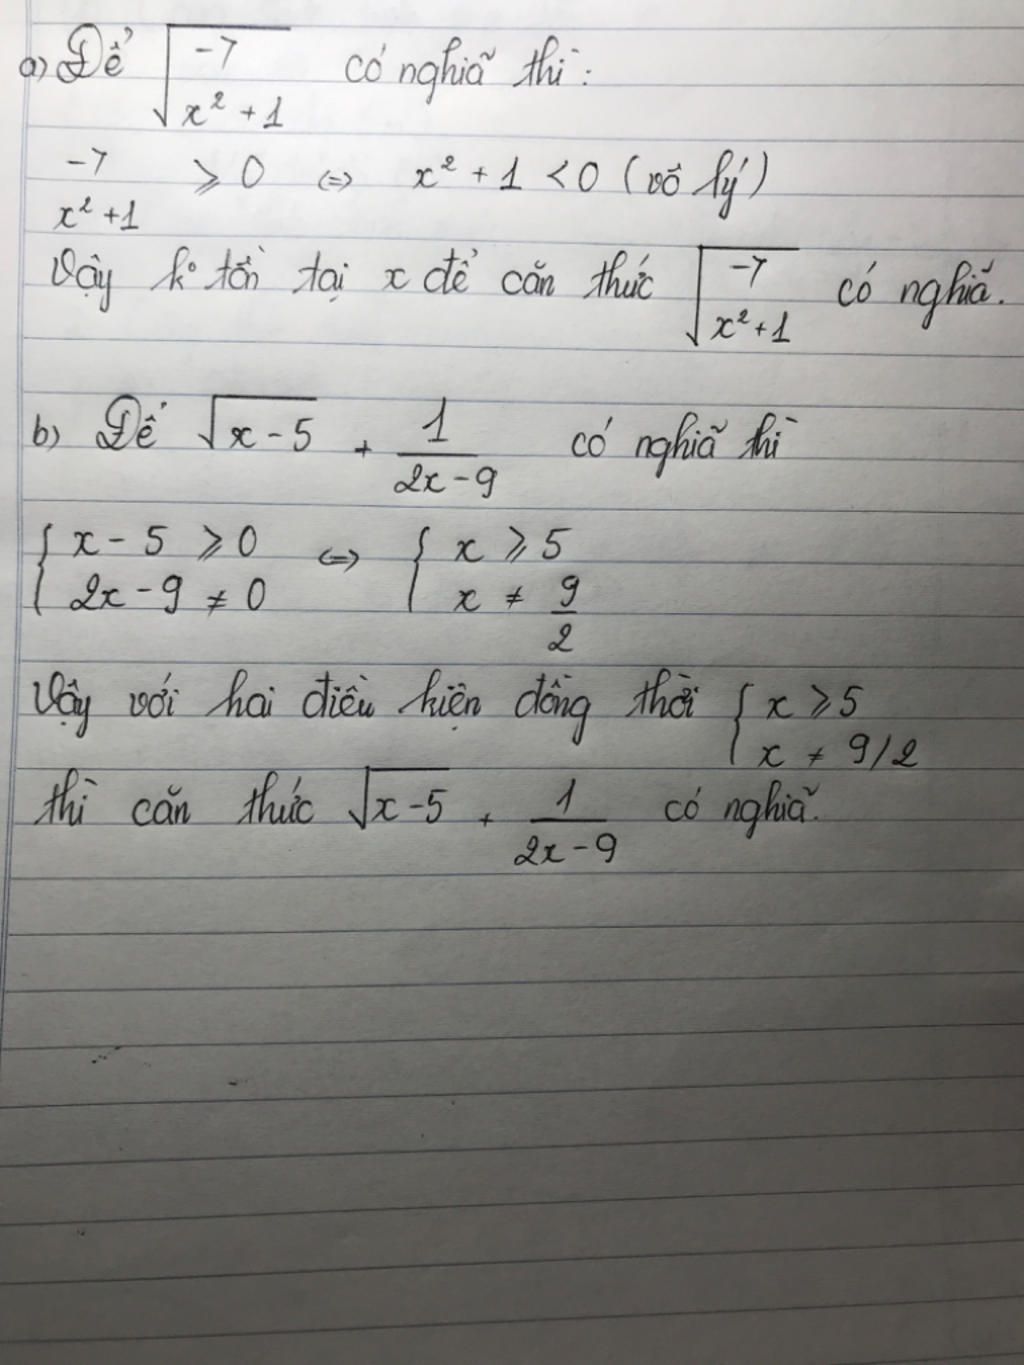 a) Để √(-7/(x² + 1)) có nghĩã thì:
-7/(x² + 1) ⩾ 0 <=> x² + 1 < 0 (vô lý)
Vậy k° tồn tại x để căn thức √(-7/(x² + 1)) có nghĩã.
b) Để √(x - 5) + 1/(2x - 9) có nghĩã thì
{ x - 5 ⩾ 0 <=> { x ⩾ 5
{ 2x - 9 ≠ 0 { x ≠ 9/2
Vậy với hai điều kiện đồng thời { x ⩾ 5
{ x ≠ 9/2
thì căn thức √(x - 5) + 1/(2x - 9) có nghĩã.